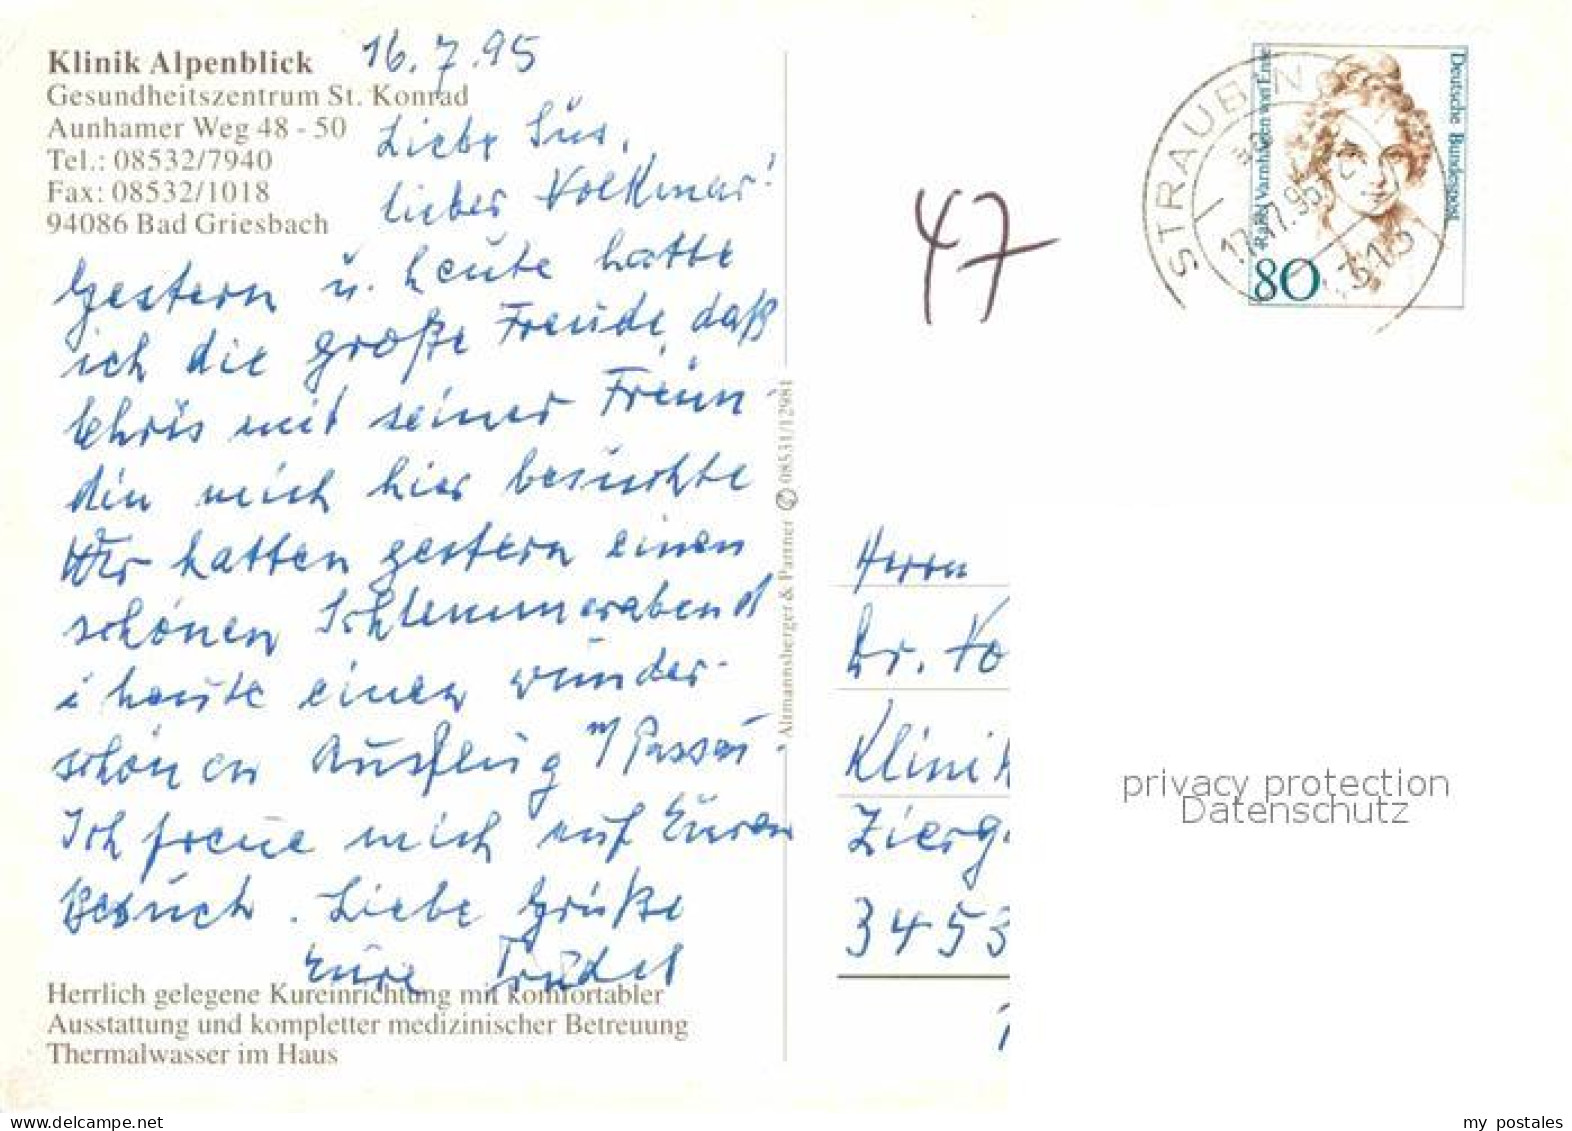 Klinik Alpenblick
Gesundheitszentrum St. Konrad
Aunhamer Weg 48 - 50
Tel.: 08532/7940
Fax: 08532/1018
94086 Bad Griesbach
16.7.95
Liebe Sus,
lieber Volkmar!
Gestern u. heute hatte
ich die große Freude, daß
Chris mit seiner Freun-
din mich hier besuchte
Wir hatten gestern einen
schönen Schlemmerabend
heute einen wunder-
schönen Ausflug n/ Passau.
Ich freue mich auf Euren
Besuch. Liebe Grüße
Eure Trudel
Herrlich gelegene Kureinrichtung mit komfortabler
Ausstattung und kompletter medizinischer Betreuung
Thermalwasser im Haus
Altmannsberger & Partner 08531/12981
47
STRAUBIN
Rahel Varnhagen von Ense
Deutsche Bundespost
80
Herrn
Dr. Vo
Klinik
Zierg
3453
privacy protection
Datenschutz
my postales